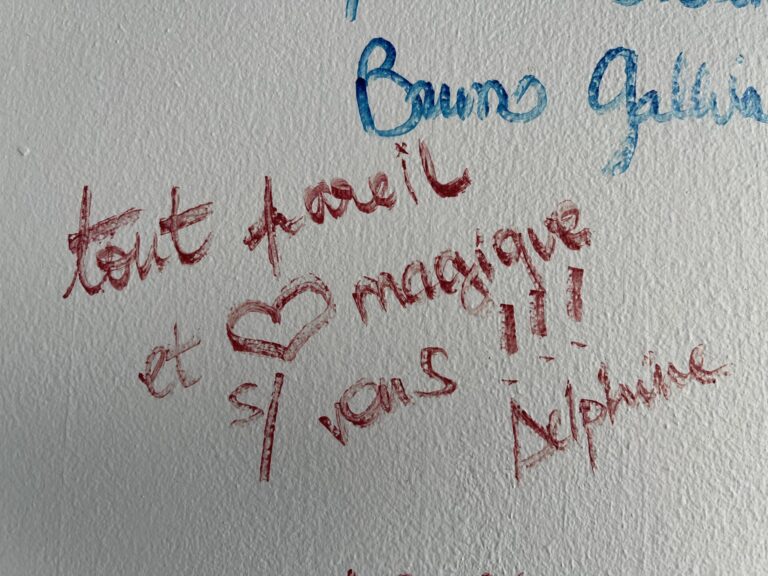 Bruno
tout pareil
et ♡ magique
s/ vous !!!
Delphine